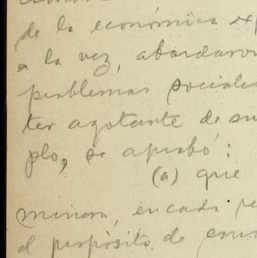 de la económica
a la vez, abordaron
problemas sociales
ter agotante de su
plo, se aprobó:
(a) que
minora, en cada
el propósito de